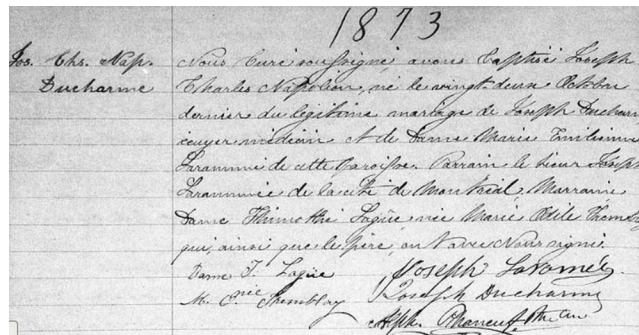 1873
Jos. Chs. Nap.
Ducharme
Nous Curé soussigné, avons baptisé Joseph
Charles Napoléon, né le vingt-deux Octobre
dernier du légitime mariage de Joseph Ducharme
écuyer médecin et de Dame Marie Emilienne
Laramée de cette paroisse. Parrain le Sieur Joseph
Laramée de la cité de Montréal, Marraine
Dame Thimothé Lagüe, née Marie Odile
qui, ainsi que le père, ont avec Nous signé.
Dame T. Lagüe
M. née Tremblay
Joseph Laramée
Joseph Ducharme
Alph. Phaneuf